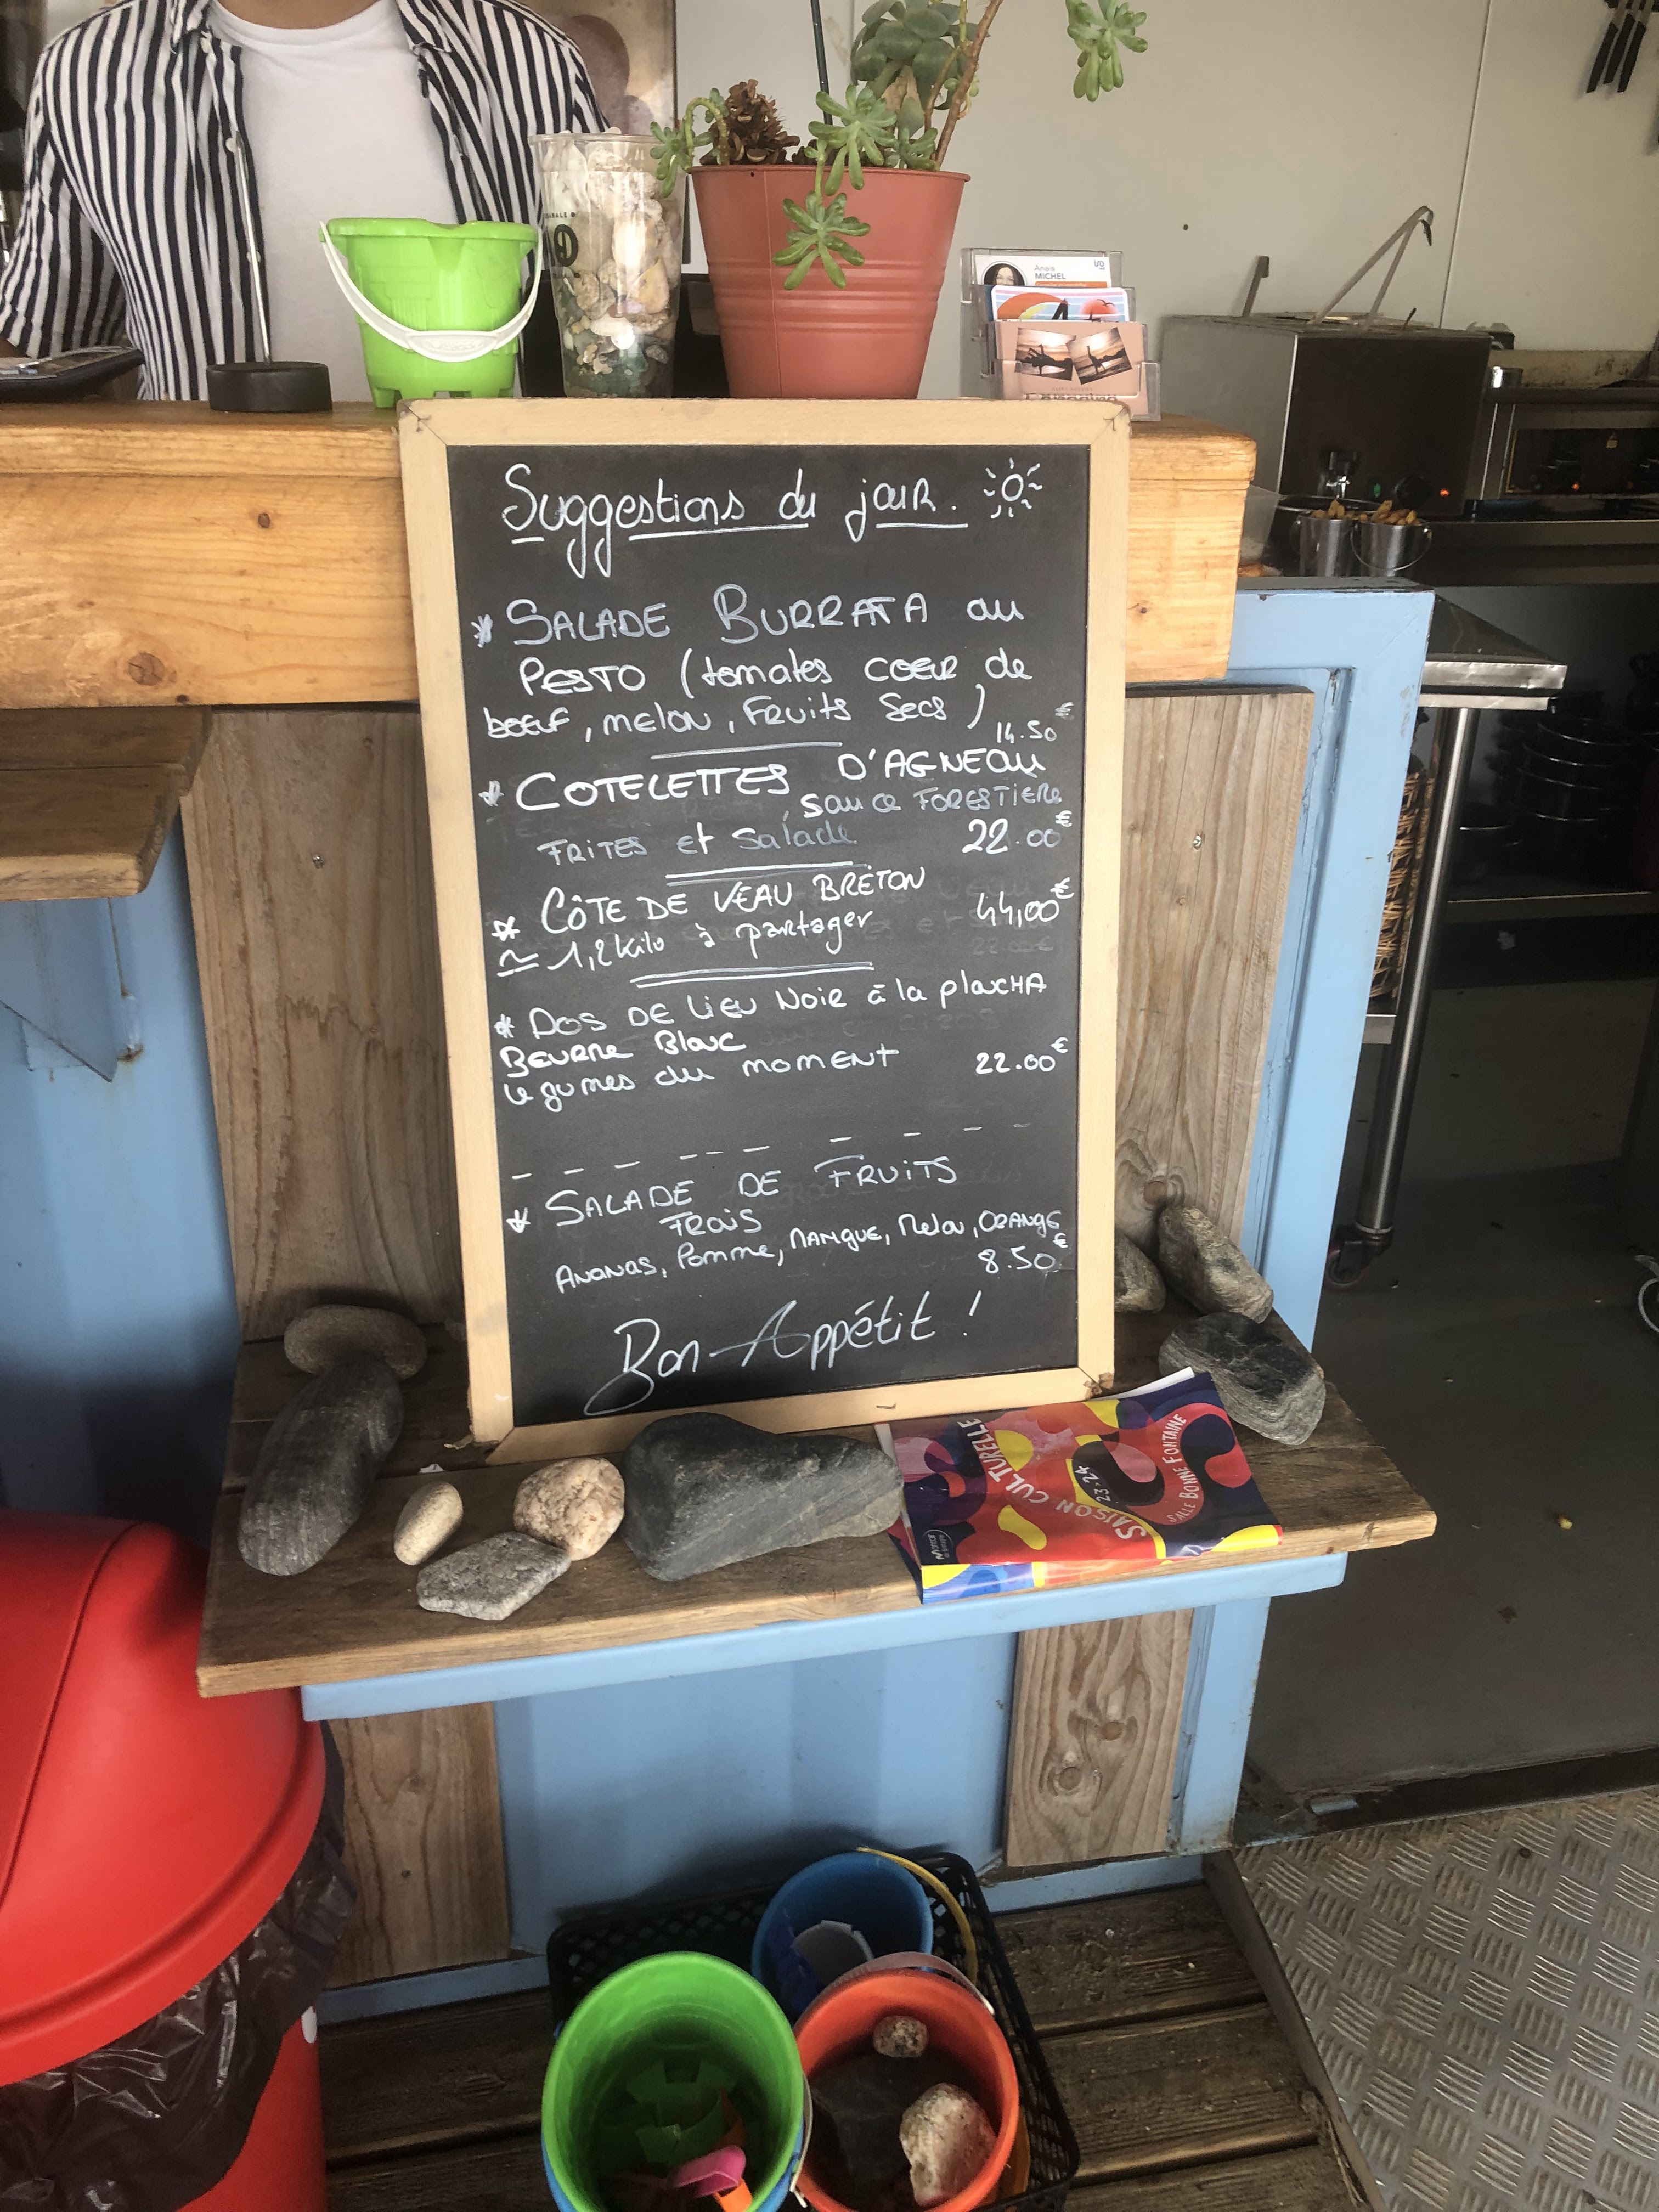 Anaïs
MICHEL
Suggestions du jour.
* SALADE BURRATA au
PESTO (tomates COEUR de
boeuf, melon, FRUITS Secs)
14.50€
* COTELETTES D'AGNEAU
, sauce FORESTIERE
FRITES et salade 22.00€
* CÔTE DE VEAU BRETON 44,00€
≃ 1,2 kilo à partager
* DOS DE LIEU NOIR à la plancHA
BEURRE Blanc
légumes du moment 22.00€
* SALADE DE FRUITS
FRais
ANANAS, Pomme, MANGUE, Melon, ORANGE
8.50€
Bon Appétit !
SAISON CULTURELLE
23-24
SALLE BONNE FONTAINE